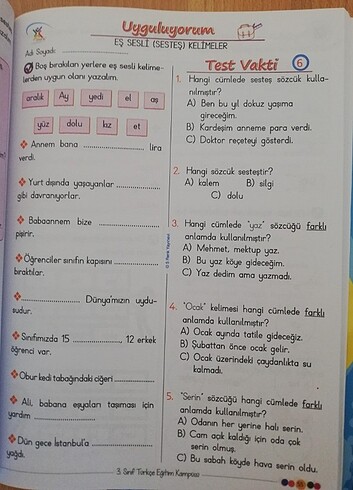 Uyguluyorum
EŞ SESLİ (SESTEŞ) KELİMELER
Adı Soyadı:
Boş bırakılan yerlere eş sesli kelime-
lerden uygun olanı yazalım.
aralık Ay yedi el aş
yüz dolu kız et
Annem bana .................... lira
verdi.
Yurt dışında yaşayanlar ....................
gibi davranıyorlar.
Babaannem bize ....................
pişirir.
Öğrenciler sınıfın kapısını ....................
bıraktılar.
.................... Dünya'mızın uydu-
sudur.
Sınıfımızda 15 ...................., 12 erkek
öğrenci var.
Obur kedi tabağındaki ciğeri ....................
Ali, babana eşyaları taşıması için
yardım ....................
Dün gece İstanbul'a ....................
yağdı.
Test Vakti 6
1. Hangi cümlede sesteş sözcük kulla-
nılmıştır?
A) Ben bu yıl dokuz yaşıma
gireceğim.
B) Kardeşim anneme para verdi.
C) Doktor reçeteyi gösterdi.
2. Hangi sözcük sesteştir?
A) kalem B) silgi
C) dolu
3. Hangi cümlede "yaz" sözcüğü farklı
anlamda kullanılmıştır?
A) Mehmet, mektup yaz.
B) Bu yaz köye gideceğim.
C) Yaz dedim ama yazmadı.
4. "Ocak" kelimesi hangi cümlede farklı
anlamda kullanılmıştır?
A) Ocak ayında tatile gideceğiz.
B) Şubattan önce ocak gelir.
C) Ocak üzerindeki çaydanlıkta su
kalmadı.
5. "Serin" sözcüğü hangi cümlede farklı
anlamda kullanılmıştır?
A) Odanın her yerine halı serin.
B) Cam açık kaldığı için oda çok
serin olmuş.
C) Bu sabah köyde hava serin oldu.
3. Sınıf Türkçe Eğitim Kampüsü